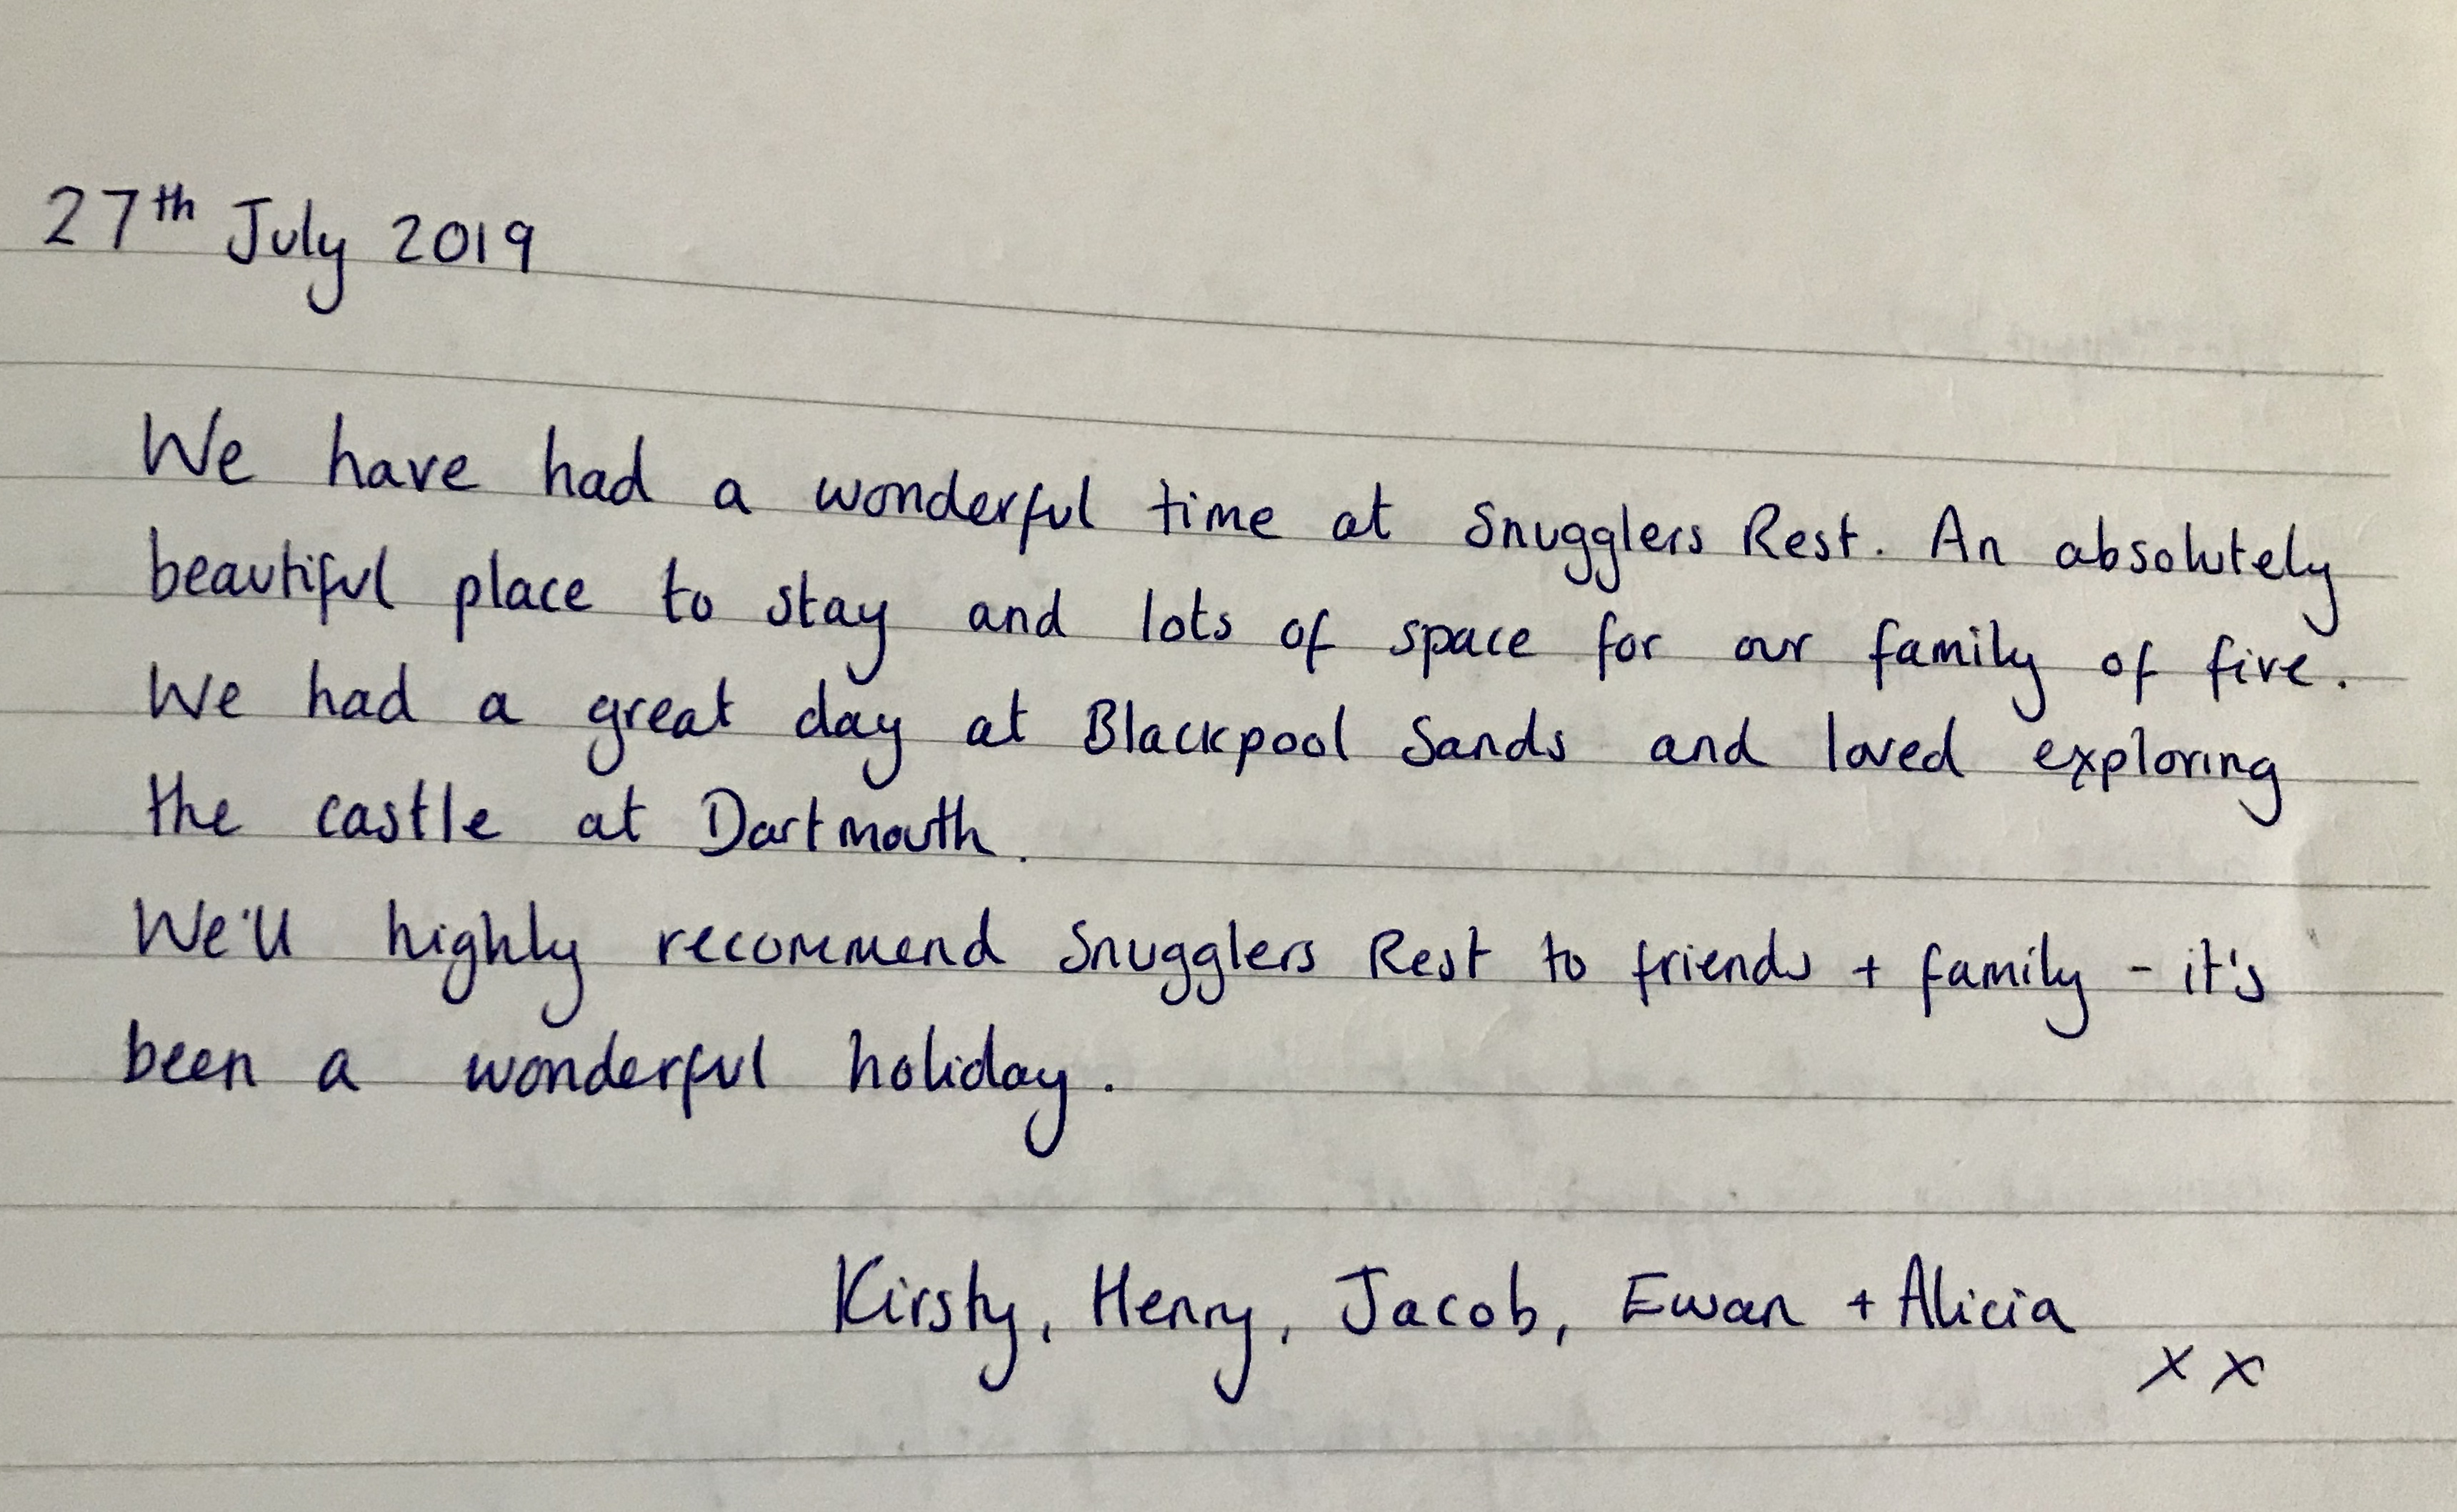 27th July 2019
We have had a wonderful time at Snugglers Rest. An absolutely
beautiful place to stay and lots of space for our family of five.
We had a great day at Blackpool Sands and loved exploring
the castle at Dartmouth.
We'll highly recommend Snugglers Rest to friends + family - it's
been a wonderful holiday.
Kirsty, Henry, Jacob, Ewan + Alicia
x x